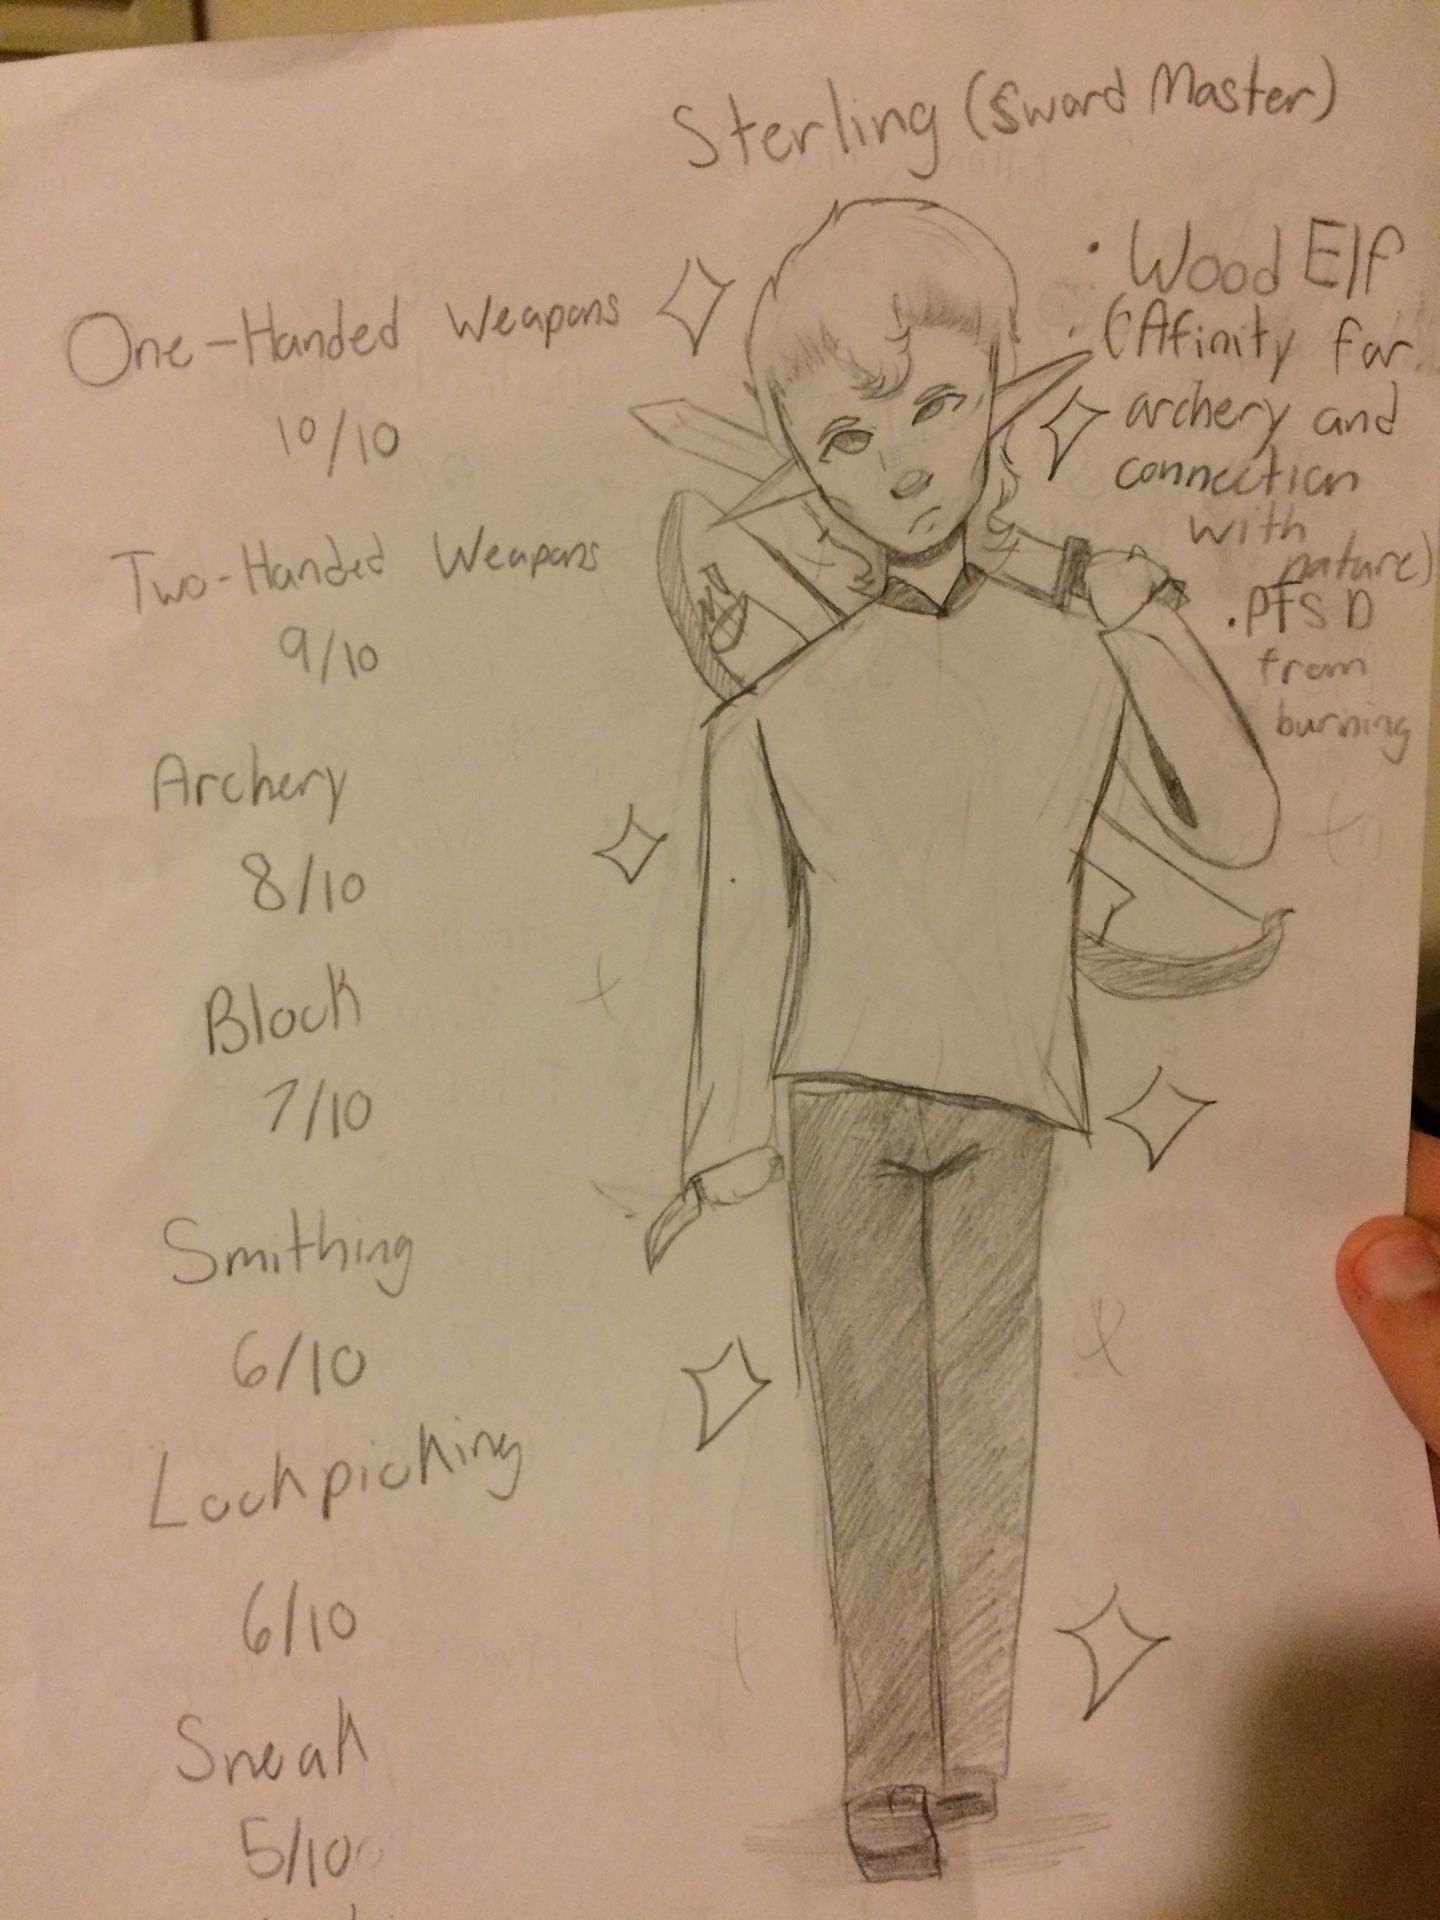 Sterling (Sword Master)
One-Handed Weapons
10/10
Two-Handed Weapons
9/10
Archery
8/10
Block
7/10
Smithing
6/10
Lockpicking
6/10
Sneak
5/10
• Wood Elf
(Afinity for
archery and
connection
with
nature)
• PTSD
from
burning